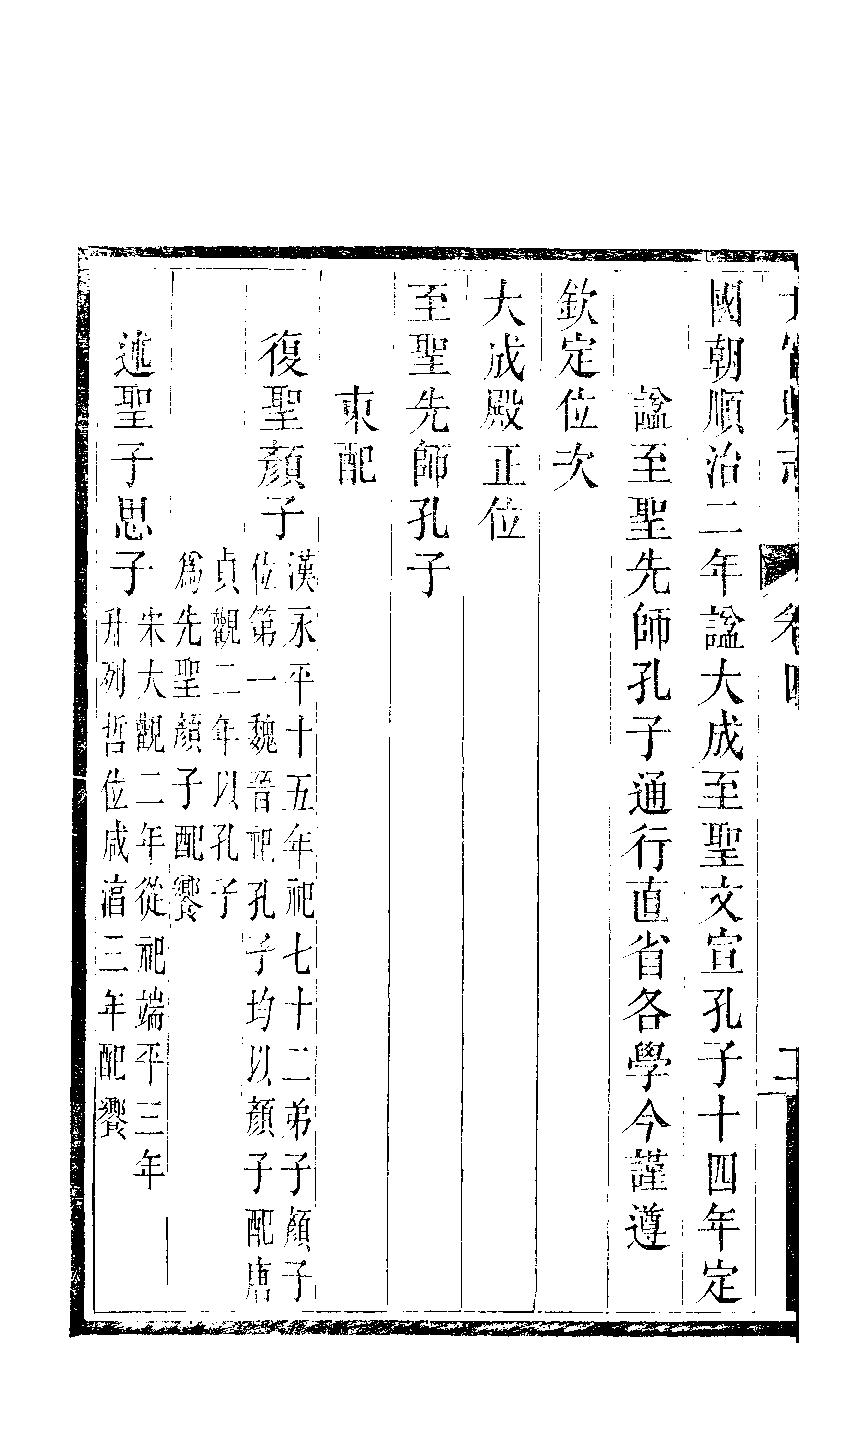 卷四
國朝順治二年諡大成至聖文宣孔子十四年定
諡至聖先師孔子通行直省各學今謹遵
欽定位次
大成殿正位
至聖先師孔子
東配
復聖顏子
漢永平十五年祀七十二弟子顏子
位第一魏晉祀孔子均以顏子配唐
貞觀二年以孔子
爲先聖顏子配饗
述聖子思子
宋大觀二年從祀端平三年
升列哲位咸淳三年配饗